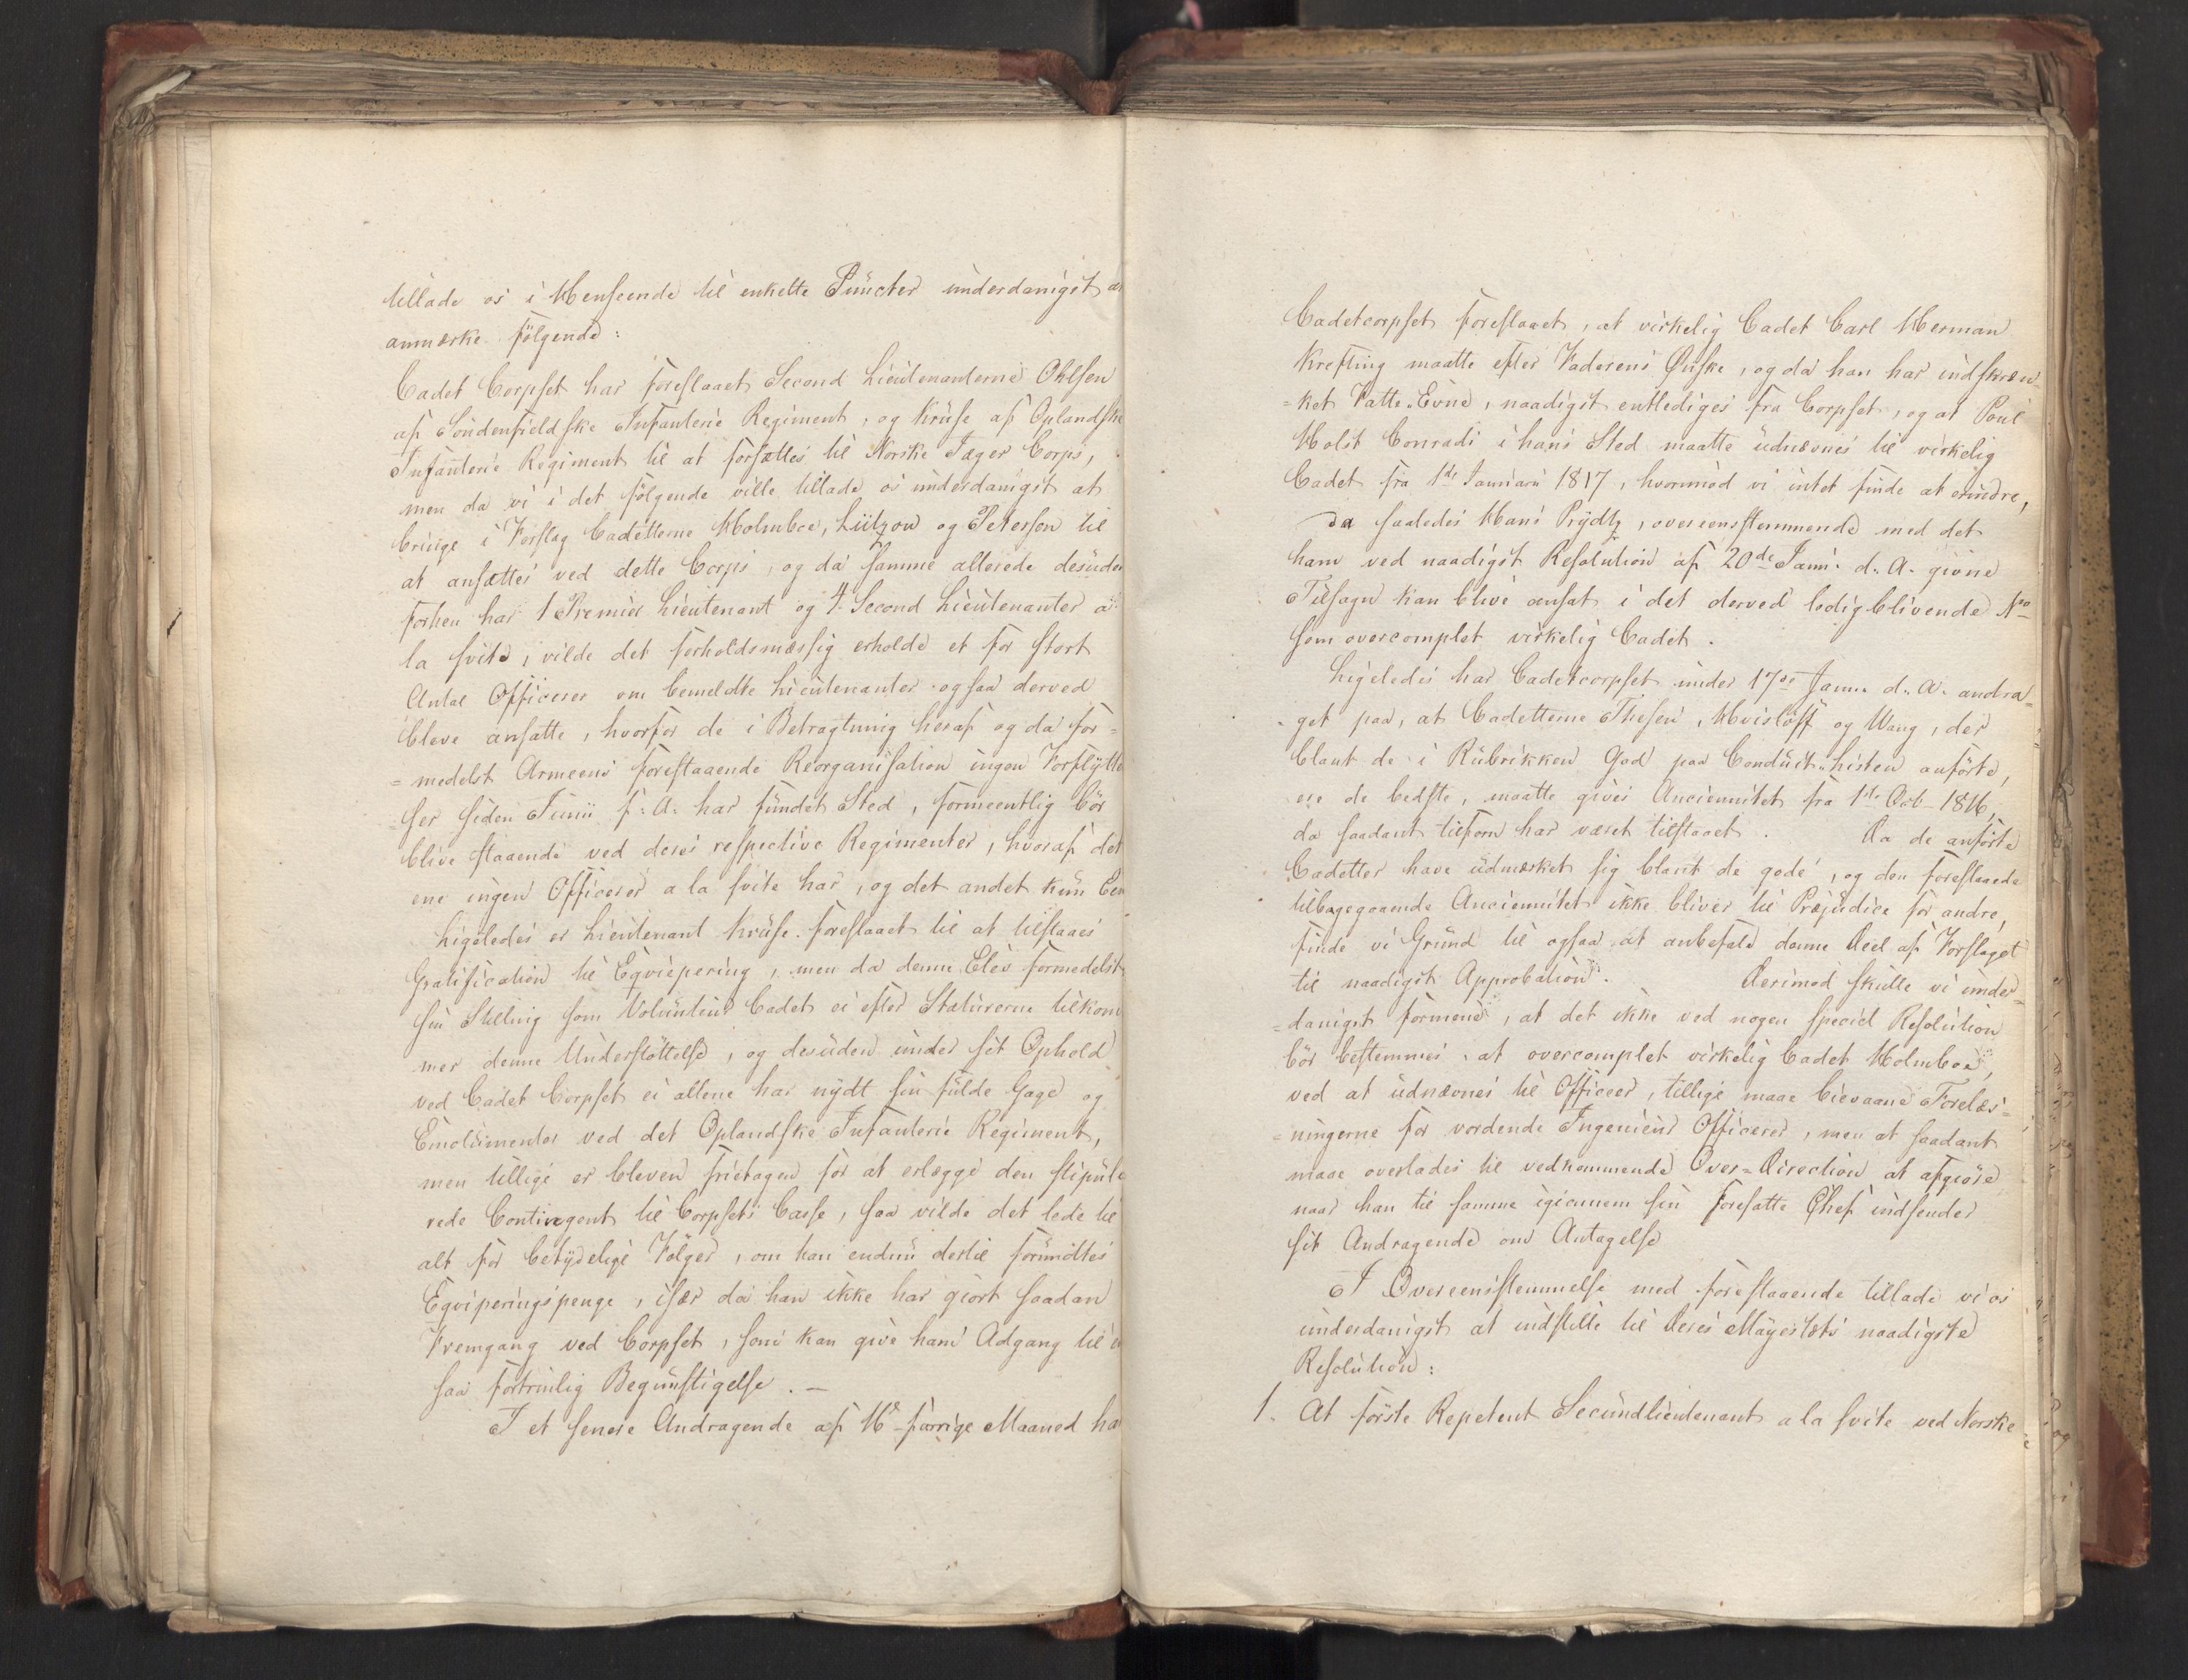 tillade os i Henseende til enkelte Puncter underdanigst at
anmærke følgende:
Cadet Corpset har foreslaaet Second Lieutenanterne Ohlsen
af Søndenfieldske Infanterie Regiment, og Kruse af Oplandske
Infanterie Regiment til at forsættes til Norske Jæger Corps,
men da vi i det følgende ville tillade os underdanigst at
bringe i Forslag Cadetterne Holmboe, Lützow og Petersen til
at ansættes ved dette Corps, og da samme allerede desuden
forhen har 1 Premier Lieutenant og 4 Second Lieutenanter a
la suite, vilde det forholdsmæssig erholde et for stort
Antal Officerer om bemeldte Lieutenanter ogsaa derved
bleve ansatte, hvorfor de i Betragtning heraf og da for=
=medelst Armeens forestaaende Reorganisation ingen Forflyttel
=ser siden Junii f: A: har fundet Sted, formeentlig bør
blive staaende ved deres respective Regimenter, hvoraf det
ene ingen Officerer a la suite har, og det andet kun Een
Ligeledes er Lieutenant Kruse foreslaaet til at tilstaaes
Gratification til Eqviepering, men da denne Elev formedelst
sin Stilling som Volontair Cadet ei efter Staturerne tilkom
mer denne Understøttelse, og desuden under sit Ophold
ved Cadet Corpset ei allene har nydt sin fulde Gage og
Emolumenter ved det Oplandske Infanterie Regiment,
men tillige er bleven fritagen for at erlægge den stipule
rede Contingent til Corpsets Casse, saa vilde det lede til
alt for betydelige Følger, om han endnu dertil formottes
Eqviperingspenge, især da han ikke har giort saadan
Fremgang ved Corpset, som kan give ham Adgang til en
saa fortrinlig Begunstigelse. —
I et senere Andragende af 16de forrige Maaned har
Cadetcorpset foreslaaet, at virkelig Cadet Carl Herman
Krefting maatte efter Faderens Ønske, og da han har indskræn=
=ket Fatte-Evne, naadigst entlediges fra Corpset, og at Poul
Holst Conradi i hans Sted maatte udnævnes til virkelig
Cadet fra 1ste Januarii 1817, hvorimod vi intet finde at erindre,
da saaledes Hans Prydtz, overeensstemmende med det
ham ved naadigst Resolution af 20de Janu: d: A: givne
Tilsagn kan blive ansat i det derved ledigblivende No
som overcomplet virkelig Cadet.
Ligeledes har Cadetcorpset under 17de Janu: d: A: andra=
=get paa, at Cadetterne Thesen, Hvisløff og Wang, der
blant de i Rubrikken God paa Conduit-Listen anførte,
ere de bedste, maatte gives Anciennitet fra 1ste Oct- 1816,
da saadant tilforn har været tilstaaet. Da de anførte
Cadetter have udmærket sig blant de gode, og den foreslaaede
tilbagegaaende Anciennitet ikke bliver til Præjudice for andre,
finde vi Grund til ogsaa at anbefale denne Deel af Forslaget
til naadigst Approbation. Derimod skulle vi under=
=danigst formene, at det ikke ved nogen speciel Resolution
bør bestemmes, at overcomplet virkelig Cadet Holmboe,
ved at udnævnes til Officeer, tillige maae bievaane Forelæs=
=ningerne for vordende Ingenieur Officerer, men at saadant
maae overlades til vedkommende Over=Direction at afgiøre
naar han til samme igiennem sin foresatte Chef indsender
sit Andragende om Antagelse
I Overeensstemmelse med forestaaende tillade vi os
underdanigst at indstille til Deres Mayestæts naadigste
Resolution:
1. At første Repetent Secundlieutenant a la suite ved Norske